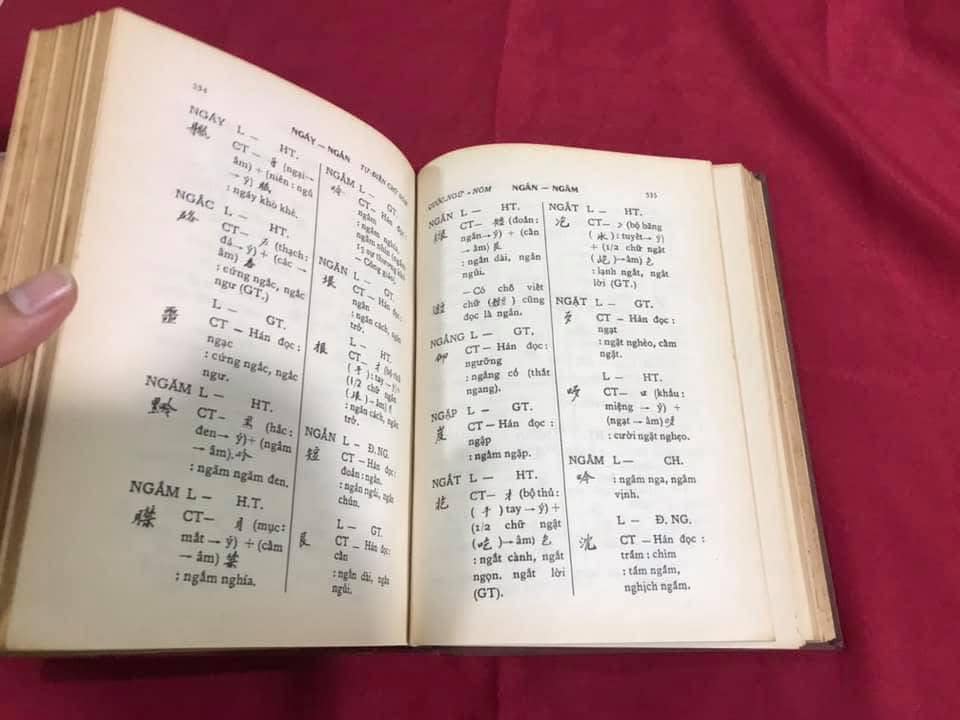 334
NGÁY — NGĂN TỰ-ĐIỂN CHỮ NÔM
NGÁY L — HT.
CT — (ngại→
âm) + (niên : ngủ
→ ý)
: ngáy khò khè.
NGẮC L — HT.
CT — (thạch :
đá→ ý) + (các →
âm)
: cứng ngắc, ngắc
ngư (GT.)
L — GT.
CT — Hán đọc :
ngạc
: cứng ngắc, ngắc
ngư.
NGĂM L — HT.
CT — (hắc :
đen→ ý) + (ngâm
→ âm). 吟
: ngăm ngăm đen.
NGẮM L — H.T.
CT — (mục :
mắt → ý) + (cấm
→ âm) 禁
: ngắm nghía.
NGẪM L — GT.
吟 CT — Hán đọc :
ngâm
Công giáo).
NGĂN L — GT.
垠 CT — Hán đọc :
ngân
: ngăn cách, ngăn
trở.
L — HT.
CT — 扌 (bộ thủ
(手) : tay → ý) +
(1/2 chữ ngân
→ âm)
: ngăn cách, ngăn
trở.
NGẮN L — Đ.NG.
短 CT — Hán đọc :
đoản : ngắn.
: ngắn ngủi, ngắn
chủn.
L — GT.
艮 CT — Hán đọc :
cấn
: ngắn dài, ngắn
ngủi.
QUỐC-NGỮ - NÔM NGẮN — NGÂM 335
NGẮN L — HT.
CT — 短 (đoản :
ngắn→ ý) + (cấn
→ âm) 艮
: ngắn dài, ngắn
ngủi.
— Có chỗ viết
chữ cũng
đọc là ngắn.
NGẲNG L — GT.
仰 CT — Hán đọc :
ngưỡng
: ngẳng cổ (thắt
ngang).
NGẬP L — GT.
CT — Hán đọc :
ngập
: ngắm ngập.
NGẮT L — HT.
扢 CT — 扌 (bộ thủ :
(手) tay → ý) +
(1/2 chữ ngật
(吃) → âm) 乞
: ngắt cành, ngắt
ngọn. ngắt lời
(GT).
NGẮT L — HT.
CT — 冫 (bộ băng
(氷) : tuyết → ý)
+ (1/2 chữ ngật
→ âm) 乞
: lạnh ngắt, ngắt
lời (GT.)
NGẶT L — GT.
歹 CT — Hán đọc :
ngạt
: ngặt nghèo, cấm
ngặt.
L — HT.
CT — 口 (khẩu :
miệng → ý) +
(ngạt → âm)
: cười ngặt nghẹo.
NGÂM L — CH.
吟 : ngâm nga, ngâm
vịnh.
L — Đ. NG.
沈 CT — Hán đọc :
trầm : chìm
: tấm ngấm,
nghịch ngấm.